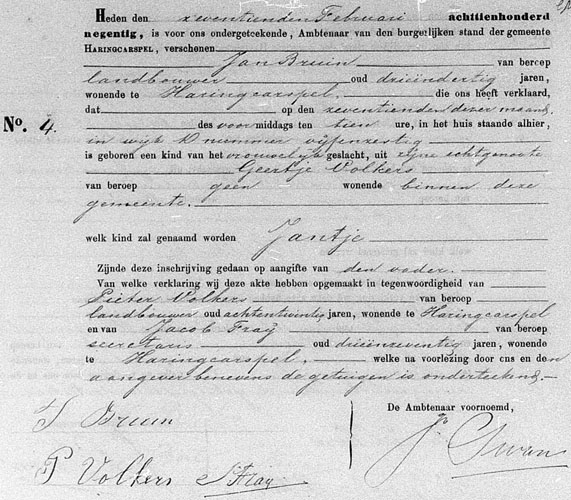 Heden den zeventienden Februari achttienhonderd
negentig, is voor ons ondergeteekende, Ambtenaar van den burgerlijken stand der gemeente
HARINGCARSPEL, verschenen
Jan Bruin van beroep
landbouwer oud drieëndertig jaren,
wonende te Haringcarspel. die ons heeft verklaard,
dat op den zeventienden dezer maand
des voormiddags ten tien ure, in het huis staande alhier,
No. 4.
in wijk D nummer vijfenzestig
is geboren een kind van het vrouwelijk geslacht, uit zijne echtgenoote
Geertje Volkers
van beroep geen wonende binnen deze
gemeente.
welk kind zal genaamd worden Jantje
Zijnde deze inschrijving gedaan op aangifte van den vader.
Van welke verklaring wij deze akte hebben opgemaakt in tegenwoordigheid van
Pieter Volkers van beroep
landbouwer oud achtentwintig jaren, wonende te Haringcarspel
en van Jacob Fraij van beroep
secretaris oud drieënzeventig jaren, wonende
te Haringcarspel. welke na voorlezing door ons en den
aangever benevens de getuigen is onderteekend.
De Ambtenaar voornoemd,
J Bruin
P Volkers J Fraij
Swan